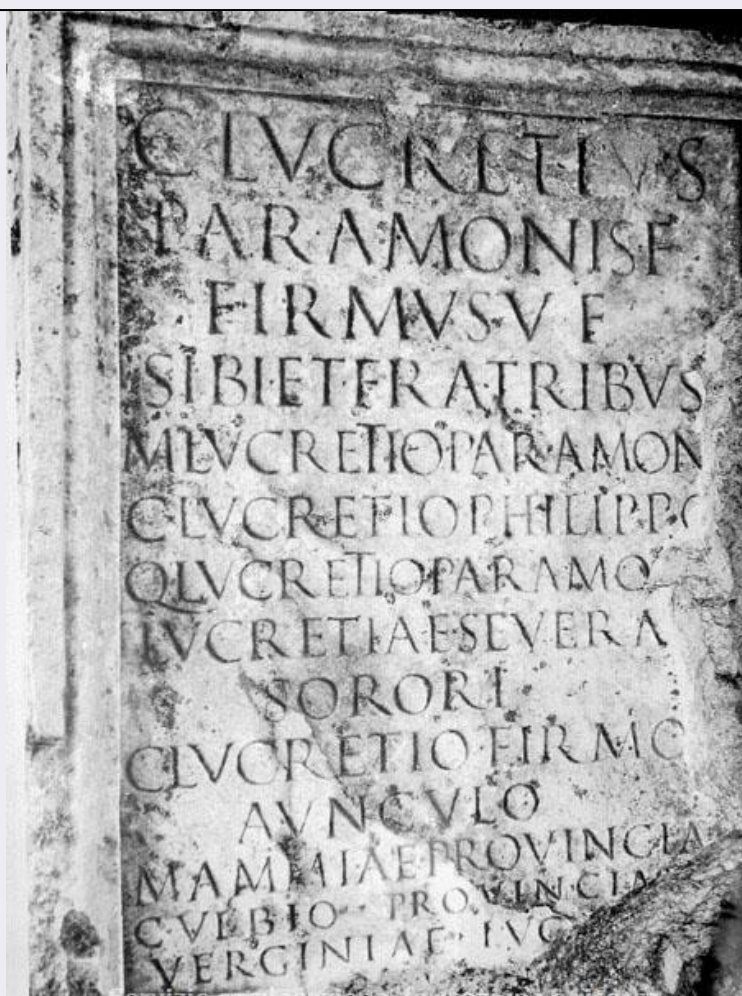 C LVCRETIVS
PARAMONIS F
FIRMVS V F
SIBI ET FRATRIBVS
M LVCRETIO PARAMON
C LVCRETIO PHILIPPO
Q LVCRETIO PARAMO
LVCRETIAE SEVERA
SORORI
C LVCRETIO FIRMO
AVNCVLO
MAMMIAE PROVINCIA
C VEBIO PROVINCIA
VERGINIAE LVC